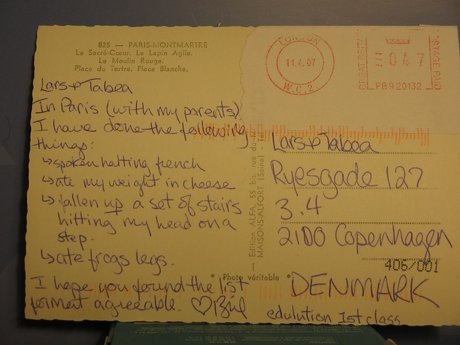 825 — PARIS-MONTMARTRE
Le Sacré-Cœur. Le Lapin Agile.
Le Moulin Rouge.
Place du Tertre. Place Blanche.
Lars + Tabea
In Paris (with my parents)
I have done the following
things:
↳ spoken halting french
↳ ate my weight in cheese
↳ fallen up a set of stairs
hitting my head on a
step.
↳ ate frogs legs.
I hope you found the list
format agreeable. ♡
LONDON
11.4.07
W.C.2
047
POSTAGE PAID
PB920132
Lars + Tabea
Ryesgade 127
3.4
2100 Copenhagen
406/001
DENMARK
edulution 1st class
Edition ALFA, 55
MAISONS-ALFORT (Seine)
" Photo véritable "